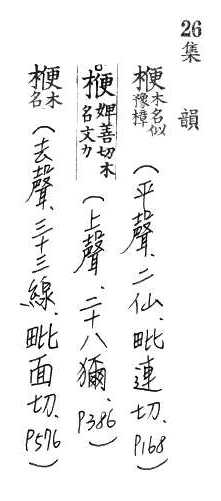 26集 韻
楩木名似豫樟(平聲、二仙、毗連切、P168)
○楩婢善切木名文九(上聲、二十八獮、P386)
楩木名(去聲、三十三線、毗面切、P576)